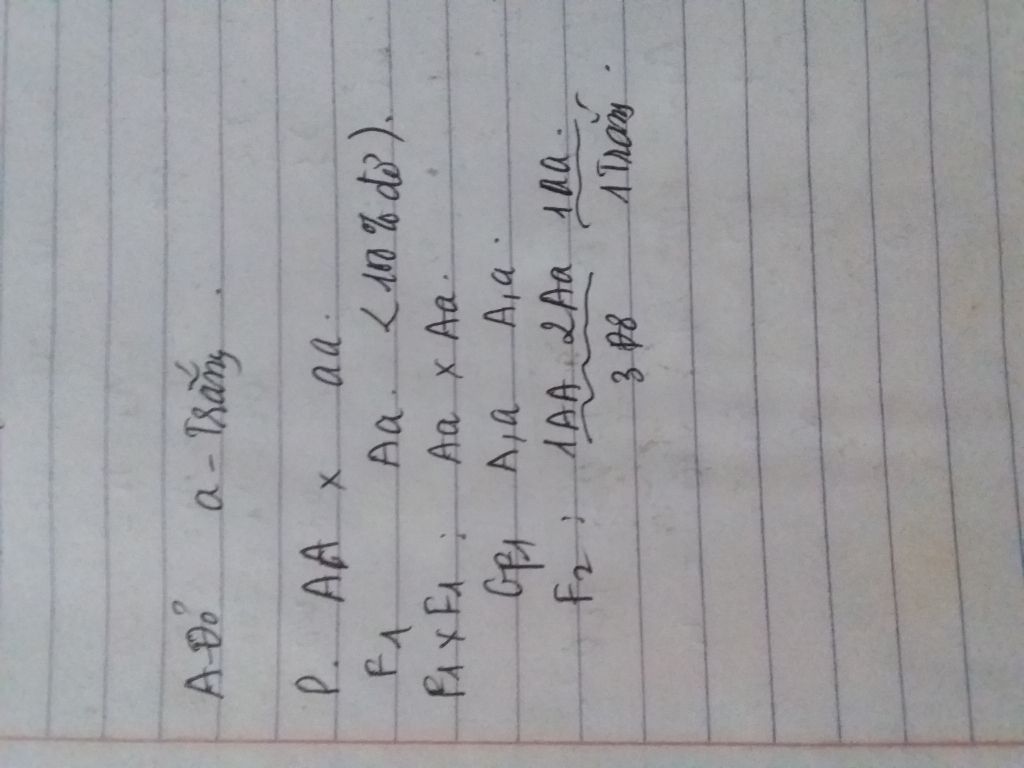 A-Đỏ a-Trắng.
P. AA x aa.
F1 Aa. <100% đỏ).
F1 x F1: Aa x Aa.
GF1 A,a A,a.
F2: 1AA 2Aa 1aa.
3 Đỏ 1 Trắng.